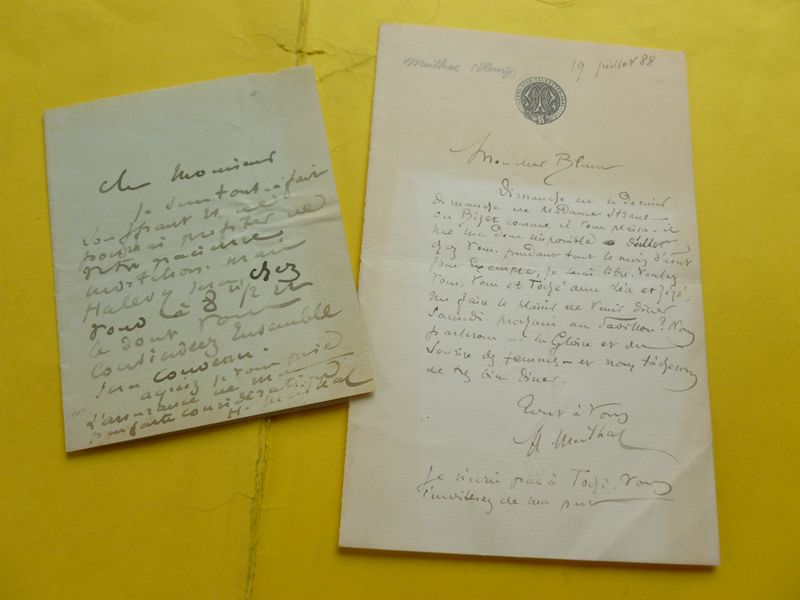 Cher Monsieur
Je suis tout-à-fait
souffrant et ne
pourrai profiter de
votre gracieuse
invitation. mais
Halévy sera chez
vous à 8 h 1/2 et
ce dont vous
causerez Ensemble
sera convenu.
agréez je vous prie
l'assurance de ma
parfaite considération
H. Meilhac
Meilhac (Henry)
19 juillet 88
Mon cher Blum
Dimanche est le dernier
dimanche de Madame Straus
ou Bizet comme il vous plaira - il
me sera donc impossible d'aller
chez vous. pendant tout le mois d'août
par Exemple, je serai libre. Voulez
vous, vous et Toché avec Léa et Zizi,
me faire le plaisir de venir dîner
Samedi prochain au Pavillon? Nous
parlerons de la Gloire et du
Sourire des femmes - et nous tâcherons
de très bien dîner.
Tout à vous
H. Meilhac
Je n'écris pas à Toché. Vous
l'inviterez de ma part